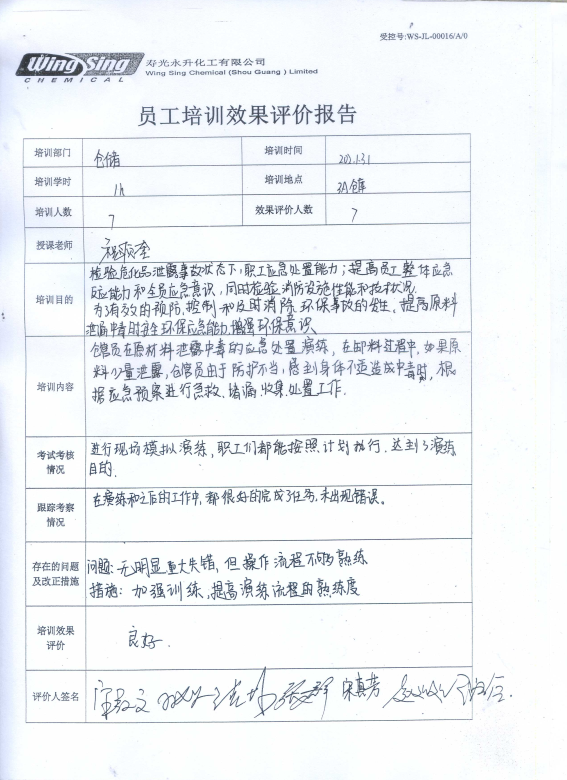 受控号:WS-JL-00016/A/0
Wing Sing
CHEMICAL
寿光永升化工有限公司
Wing Sing Chemical (Shou Guang) Limited
员工培训效果评价报告
培训部门 仓储 培训时间
培训学时 1h 培训地点
培训人数 7 效果评价人数 7
授课老师
培训目的
检验危化品泄露事故状态下,职工应急处置能力;提高员工整体应急
反应能力和全员应急意识,同时检验消防设施性能和技术状况
为有效的预防、控制和及时消除环保事故的发生,提高原料
泄漏中毒时 环保应急能力,增强环保意识
培训内容
仓管员在原材料泄露中毒的应急处置演练,在卸料过程中,如果原
料少量泄露,仓管员由于防护不当,感到身体不适造成中毒时,根
据应急预案进行急救、堵漏、收集处置工作.
考试考核
情况
进行现场模拟演练,职工们都能按照计划执行.达到了演练
目的.
跟踪考察
情况
在演练和之后的工作中,都很好的完成了任务,未出现错误。
存在的问题
及改正措施
问题:无明显重大失错,但操作流程不够熟练
措施:加强训练,提高演练流程的熟练度
培训效果
评价
良好.
评价人签名 宋真芳